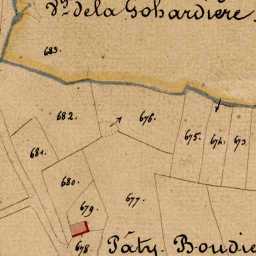 Vx. de la Gohardiere.
683.
682.
676.
675.
674.
673
681.
680.
679.
677.
678.
Pâty. Boudie